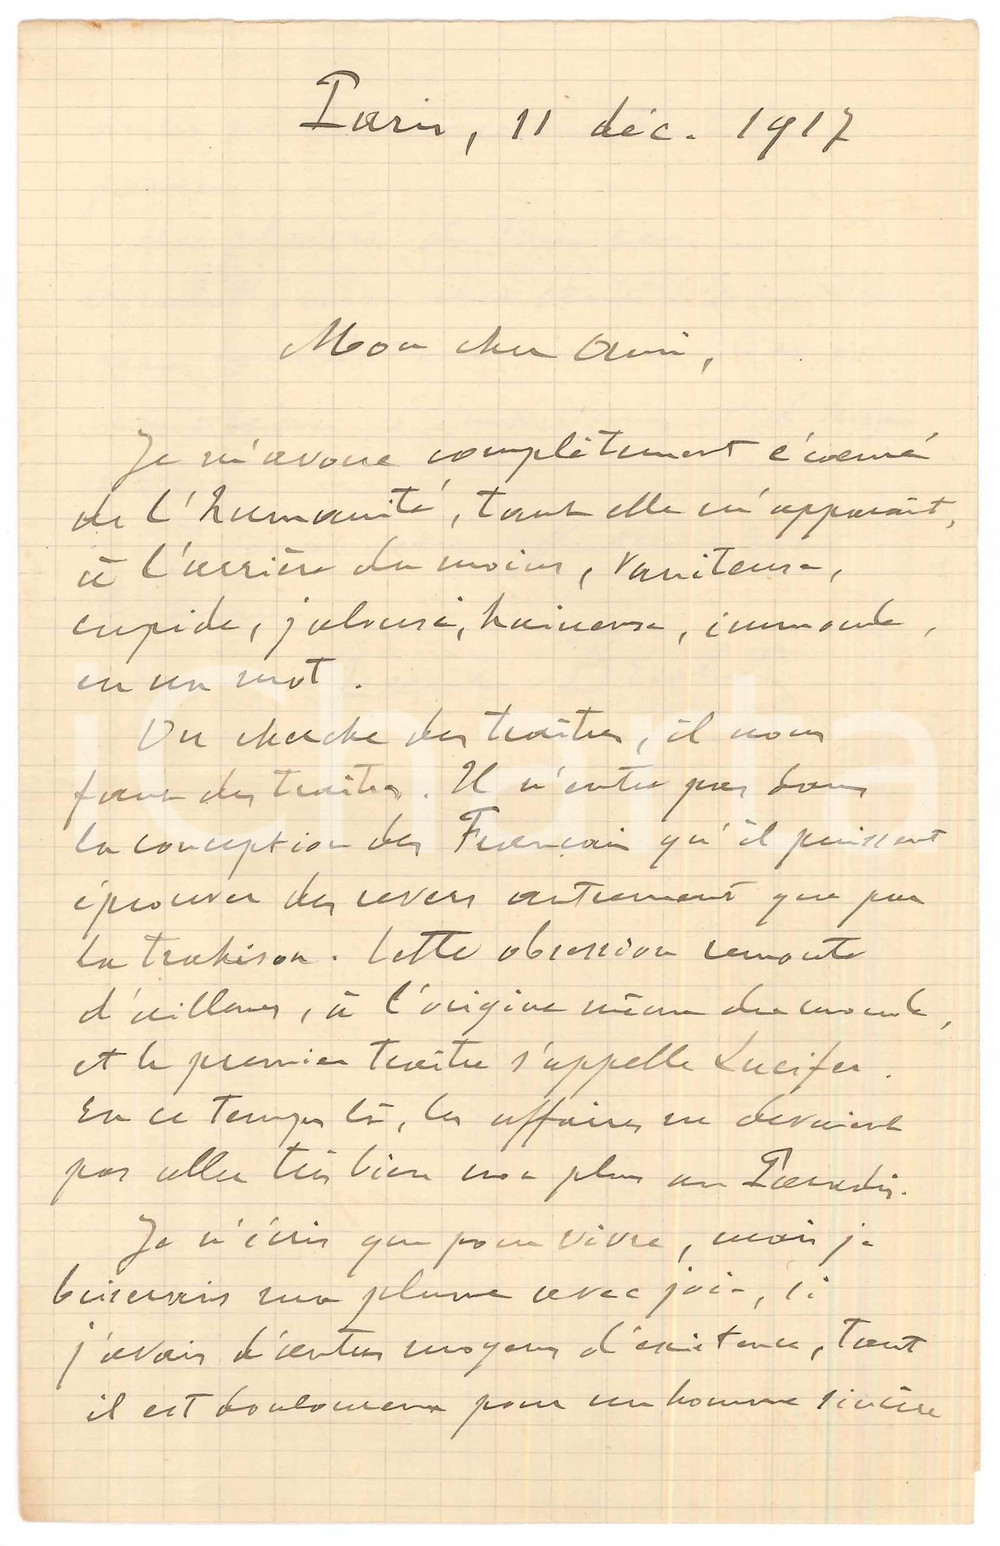 Paris, 11 déc. 1917
Mon cher Ami,
Je m'avoue complètement écœuré
de l'humanité, tant elle m'apparaît,
à l'arrière du moins, vaniteuse,
cupide, jalouse, haineuse, immonde,
en un mot.
On cherche des traîtres, il nous
faut des traîtres. Il n'entre pas dans
la conception des Français qu'il puissent
éprouver des revers autrement que par
la trahison. Cette obsession remonte
d'ailleurs, à l'origine même du monde,
et le premier traître s'appelle Lucifer.
En ce temps là, les affaires ne devaient
pas aller très bien non plus au Paradis.
Je n'écris que pour vivre, mais je
briserais ma plume avec joie, si
j'avais d'autres moyens d'existence, tant
il est douloureux pour un homme sincère